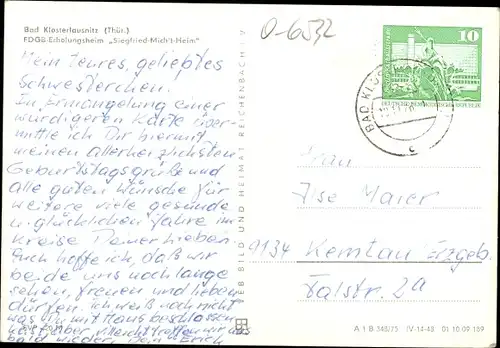 Bad Klosterlausnitz (Thür.)
FDGB-Erholungsheim „Siegfried-Michl-Heim"
O-6532
10
Mein teures, geliebtes
Schwesterchen.
In Ermangelung einer
würdigeren Karte über-
mittle ich Dir hiermit
meinen allerherzlichsten
Geburtstagsgrüße und
alle guten Wünsche für
weitere viele gesunde
u. glücklichen Jahre im
Kreise Deiner lieben.
Auch hoffe ich, daß wir
beide uns noch lange
sehen, freuen und lieben
dürfen. ich weiß noch nicht
was Du mit Haus beschlossen
hast, aber vielleicht treffen wir uns
bald wieder. Dein Erich
VEB BILD UND HEIMAT REICHENBACH I. V.
BAD KLOSTERLAUSNITZ
c
DEUTSCHE DEMOKRATISCHE REPUBLIK
Frau
Ilse Maier
9134 Kemtau Erzgeb.
Talstr. 2a
A 1 B 348/75 IV-14-48 01 10 09 169